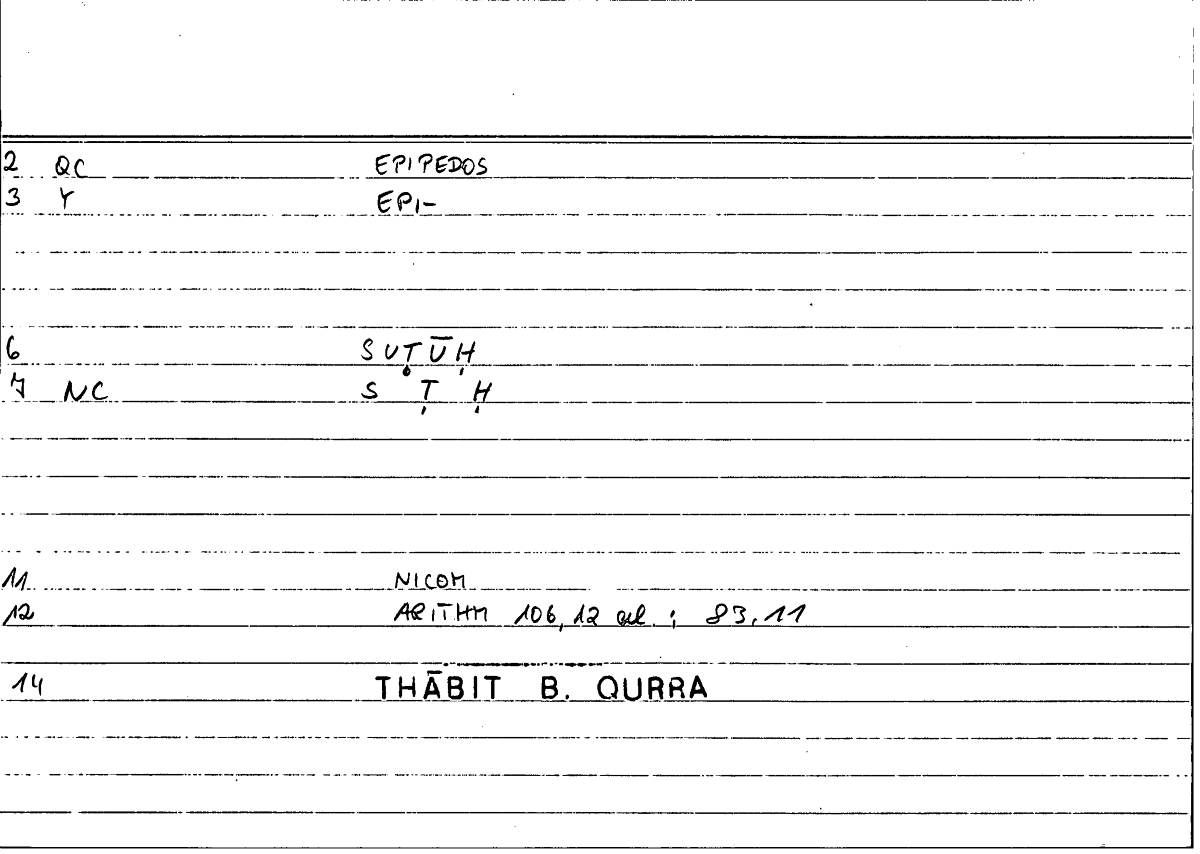 2 QC EPIPEDOS
3 Y EPI-
6 SUṬŪḤ
7 NC S Ṭ Ḥ
11 NICOM
12 ARITHM 106,12 al. ; 83,11
14 THĀBIT B. QURRA